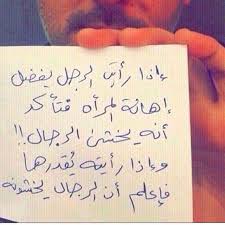 إذا رأيت الرجل يفضل
إهانة المرأه فتأكد
أنه يخشى الرجال !!
وإذا رأيته يُقدرها
فإعلم أن الرجال يخشونه